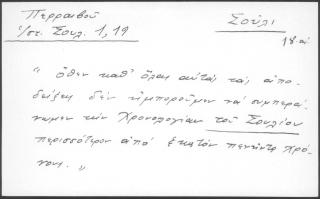 Περραιβοῦ Σούλι
ἱστ. Σουλ. 1, 19 18-αι
"ὅθεν καθ' ὅλας αὐτὰς τὰς ἀπο-
δείξεις δὲν ἠμποροῦμεν νὰ συμπερά-
νωμεν τὴν Χρονολογίαν τοῦ Σουλίου
περισσότερον ἀπὸ ἑκατὸν πενῆντα χρό-
νους."